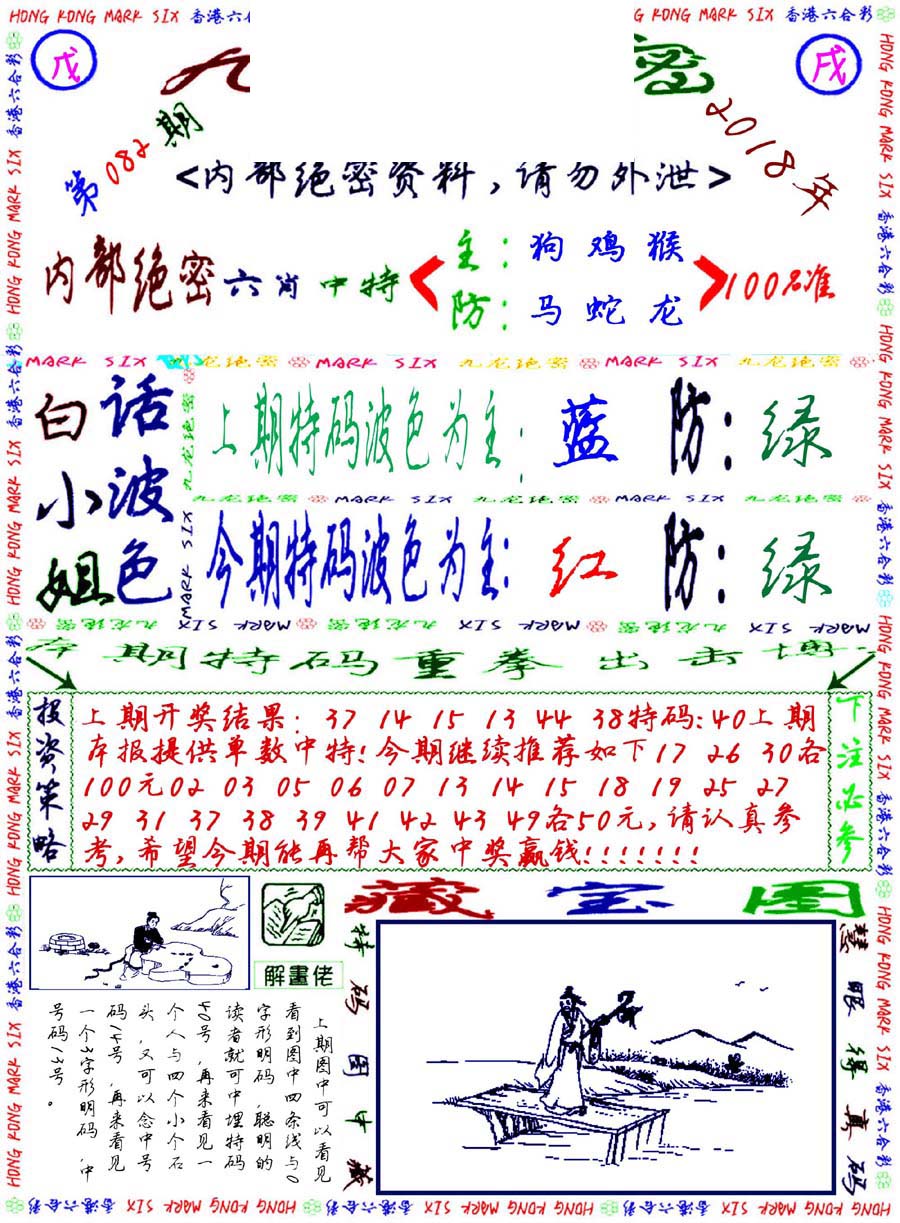 HONG KONG MARK SIX 香港六合彩
G KONG MARK SIX 香港六合彩
戊
九
密
戌
第082期
2018年
<内部绝密资料,请勿外泄>
内部绝密六肖中特
主:狗 鸡 猴
防:马 蛇 龙
100%准
MARK SIX 九龙绝密 MARK SIX 九龙绝密 MARK SIX 九龙绝密
白话
小波
姐色
上期特码波色为主:蓝 防:绿
九龙绝密 MARK SIX 九龙绝密 MARK SIX 九龙绝密
今期特码波色为主:红 防:绿
九龙绝密 MARK SIX 九龙绝密 MARK SIX 九龙绝密 MARK SIX
本期特码重拳出击博
投资策略
上期开奖结果: 37 14 15 13 44 38特码:40上期
本报提供单数中特!今期继续推荐如下17 26 30各
100元02 03 05 06 07 13 14 15 18 19 25 27
29 31 37 38 39 41 42 43 49各50元,请认真参
考,希望今期能再帮大家中奖赢钱!!!!!!!
下注必参
解畫佬
藏宝图
上期图中可以看见
看到图中四条线与0
字形明码,聪明的
读者就可中埋特码
40号,再来看见一
个人与四个小个石
头,又可以念中号
码14号,再来看见
一个3字形明码,中
号码13号。
特码图中藏
慧眼得真码
HONG KONG MARK SIX 香港六合彩